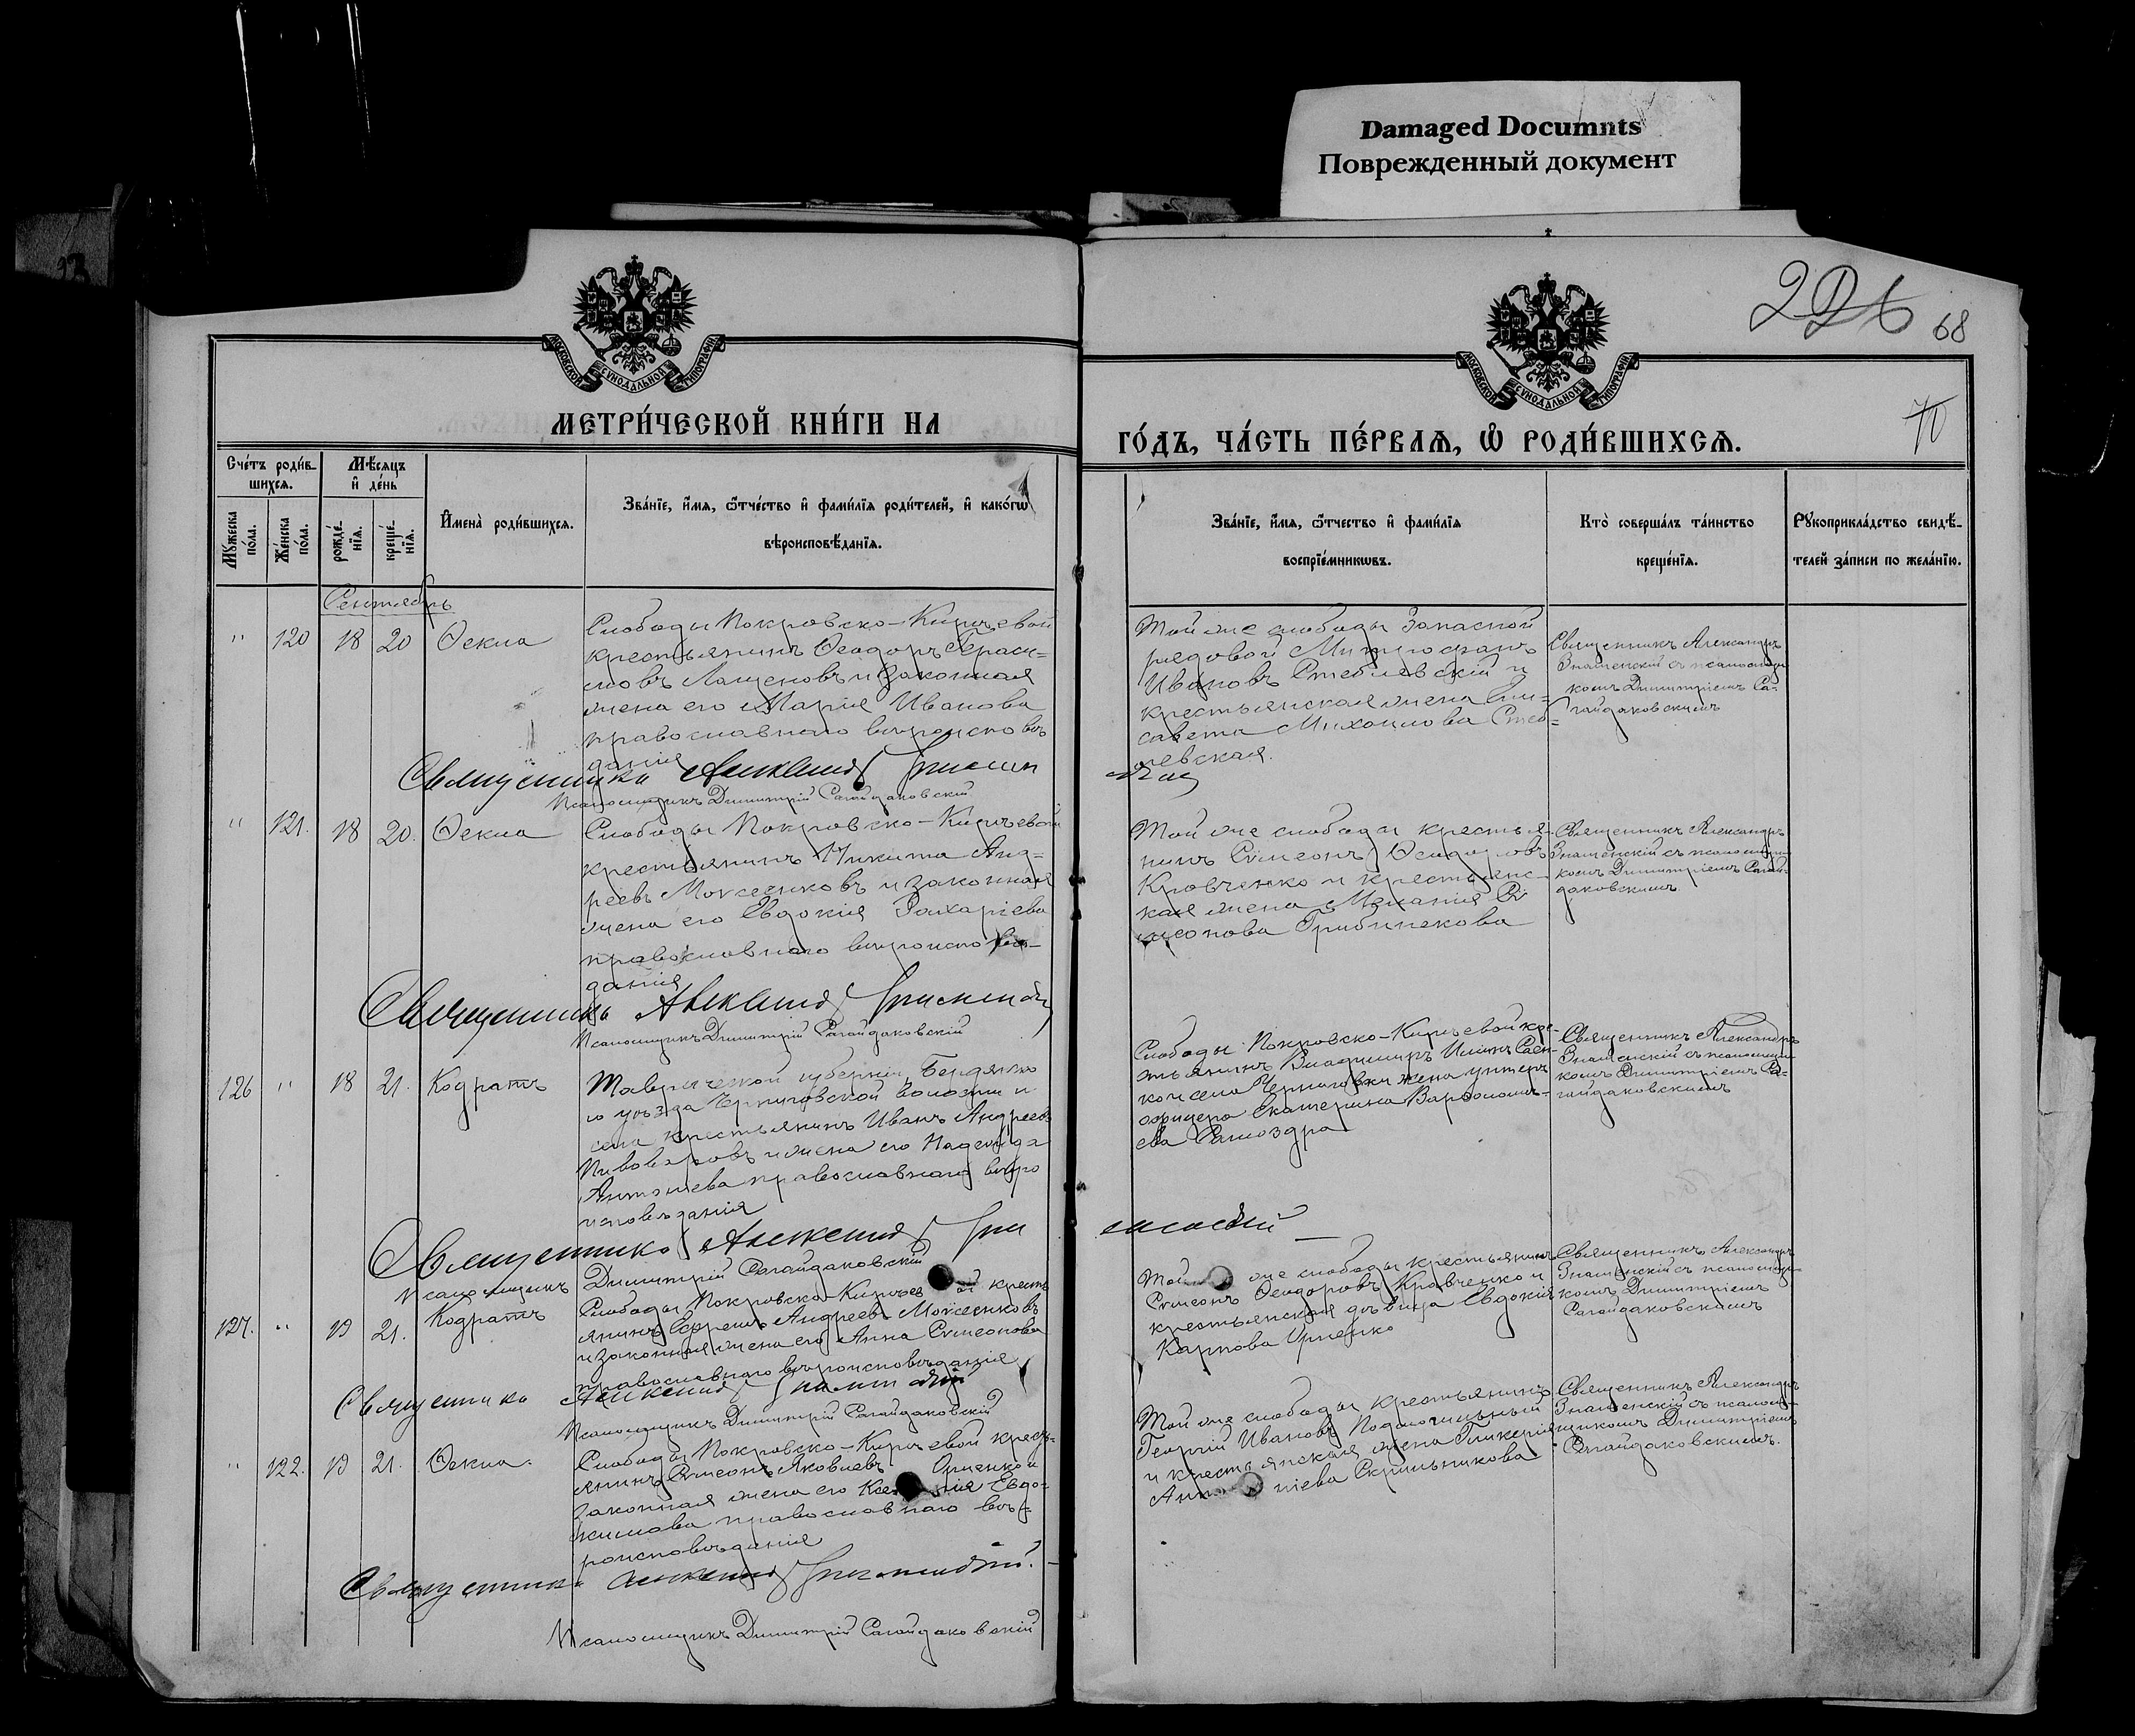 Damaged Documnts
Поврежденный документ
68
70
МОСКОВСКОЙ СѴНОДАЛЬНОЙ ТИПОГРАФІИ
МОСКОВСКОЙ СѴНОДАЛЬНОЙ ТИПОГРАФІИ
МЕТРИ́ЧЕСКОЙ КНИ́ГИ НА
ГО́ДЪ, ЧА́СТЬ ПЕ́РВАѦ, Ѡ РОДИ́ВШИХСѦ.
Сче́тъ роди́в-
шихсѧ.
Мꙋ́жеска
по́ла.
Же́нска
по́ла.
Мѣ́сѧцъ
и҆ де́нь
рожде́-
нїѧ.
креще́-
нїѧ.
И҆мена̀ роди́вшихсѧ.
Зва́нїе, и҆́мѧ, ѻ҆́тчество и҆ фами́лїѧ роди́телей, и҆ како́гѡ
вѣроисповѣ́данїѧ.
Зва́нїе, и҆́мѧ, ѻ҆́тчество и҆ фами́лїѧ
воспрїе́мникѡвъ.
Кто̀ соверша́лъ та́инство
креще́нїѧ.
Рꙋкоприкла́дство свидѣ́-
телей за́писи по жела́нїю.
Сентябрь
" 120 18 20 Ѳекла
Слободы Покровско-Киръевой
крестьянинъ Ѳеодоръ Гераси-
мовъ Лащеновъ и законная
жена его Марія Иванова
православнаго вѣроисповѣ
данія
Той же слободы Запасной
рядовой Митрофанъ
Ивановъ Стеблевскій и
крестьянская жена Ели-
савета Михаилова Стеб-
левская.
Священникъ Александръ
Знаменскій съ псаломщи
комъ Димитріемъ Са-
гайдаковскимъ
Священникъ Александръ
Псаломщикъ Димитрій Сагайдаковскій
" 121. 18 20. Ѳекла
Слободы Покровско-Киръевой
крестьянинъ Никита Анд-
реевъ Моисеенковъ и законная
жена его Евдокія Захаріева
православнаго вѣроисповѣ-
данія
Той же слободы крестья-
нинъ Симеонъ Ѳеодоровъ
Кравченко и крестьянс-
кая жена Меланія Си
меонова Грибинекова
Священникъ Александръ
Знаменскій съ псаломщи-
комъ Димитріемъ Сагай-
даковскимъ
Священникъ Александръ
Псаломщикъ Димитрій Сагайдаковскій
126 " 18 21. Кодратъ
Таврической губерніи Бердянска
го уѣзда Черниговской волости и
села крестьянинъ Иванъ Андреевъ
Пивоваровъ и жена его Надежда
Антоніева православнаго вѣро
исповѣданія
Слободы Покровско-Киръевой кре-
стьянинъ Владимиръ Ильинъ Саен-
ко и села Черниговки жена унтеръ
офицера Екатерина Варфоломе-
ева Самоздра
Священникъ Александръ
Знаменскій съ псаломщи
комъ Димитріемъ Са-
гайдаковскимъ
Священникъ Александръ
Псаломщикъ Димитрій Сагайдаковскій
127. " 19 21. Кодратъ
Слободы Покровско-Киръевой кресть
янинъ Ефремъ Андреевъ Моисеенковъ
и законная жена его Анна Симеонова
православнаго вѣроисповѣданія
Той же слободы крестьянинъ
Симеонъ Ѳеодоровъ Кравченко и
крестьянская дѣвица Евдокія
Карпова
Священникъ Александръ
Знаменскій съ псаломщи-
комъ Димитріемъ
Сагайдаковскимъ
Священникъ Александръ
Псаломщикъ Димитрій Сагайдаковскій
" 122. 19 21. Ѳекла.
Слободы Покровско-Киръевой кресть-
янинъ Симеонъ Яковлевъ
законная жена его Евдо-
кимова православнаго вѣ-
роисповѣданія
Той же слободы крестьянинъ
Георгій Ивановъ Подмогильный
и крестьянская жена Гликерія
Священникъ Александръ
Знаменскій съ псалом-
щикомъ Димитріемъ
Сагайдаковскимъ.
Священникъ Александръ
Псаломщикъ Димитрій Сагайдаковскій